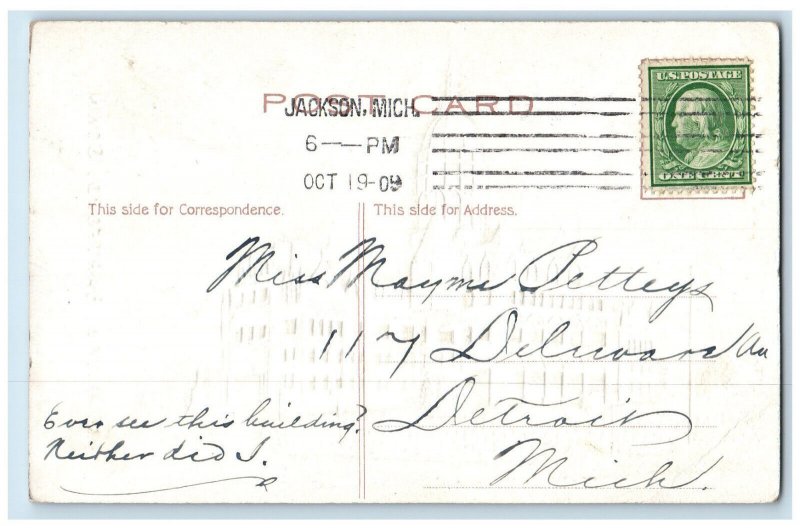 POST CARD
JACKSON, MICH.
6 — PM
OCT 19-09
U.S. POSTAGE
ONE CENT
This side for Correspondence.
This side for Address.
Miss Mayme Petteys
117 Deleware Av
Detroit
Mich.
Ever see this building?
Neither did I.